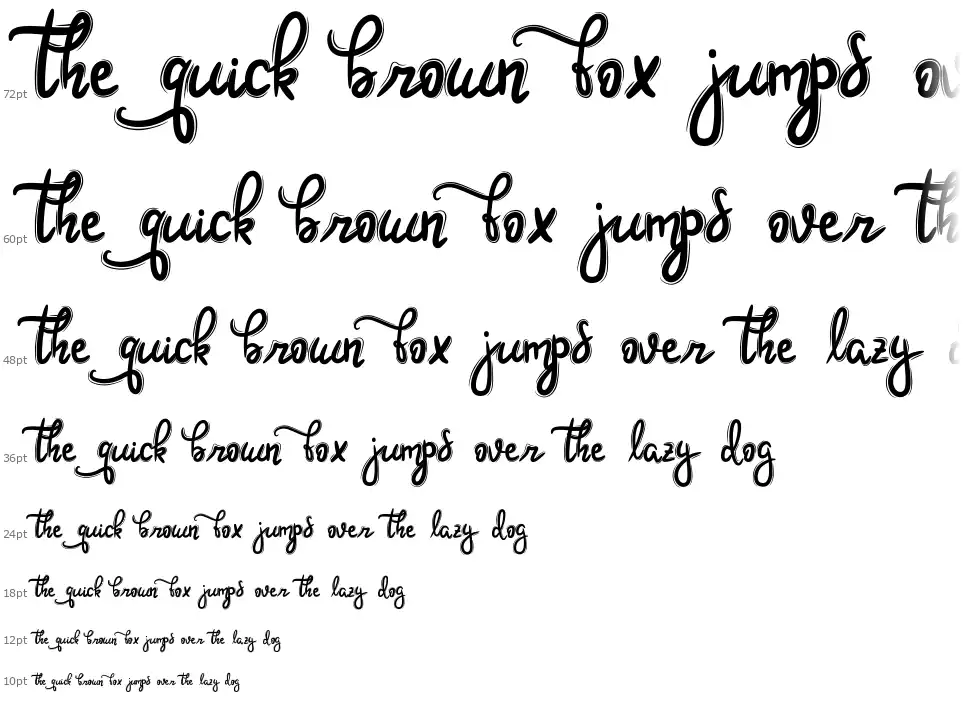 72pt the quick brown fox jumps ov
60pt the quick brown fox jumps over th
48pt the quick brown fox jumps over the lazy
36pt the quick brown fox jumps over the lazy dog
24pt the quick brown fox jumps over the lazy dog
18pt the quick brown fox jumps over the lazy dog
12pt the quick brown fox jumps over the lazy dog
10pt the quick brown fox jumps over the lazy dog